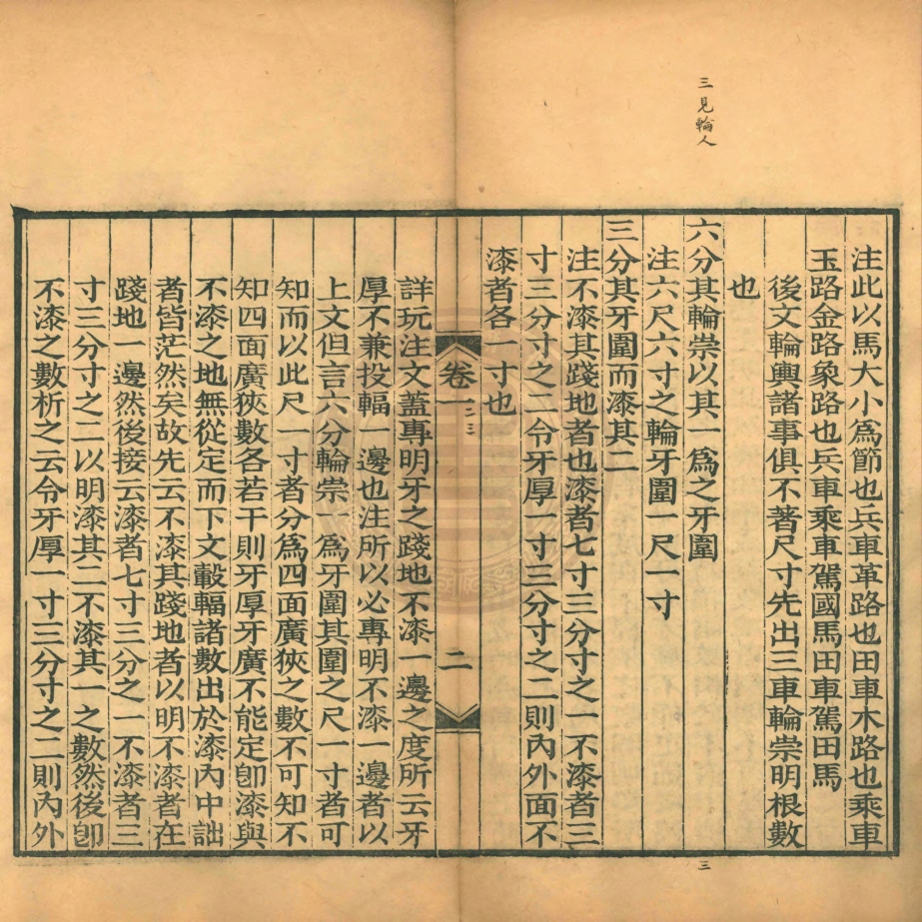 三見輪人
注此以馬大小爲節也兵車革路也田車木路也乘車
玉路金路象路也兵車乘車駕國馬田車駕田馬
後文輪輿諸事俱不著尺寸先出三車輪崇明根數
也
六分其輪崇以其一爲之牙圍
注六尺六寸之輪牙圍一尺一寸
三分其牙圍而漆其二
注不漆其踐地者也漆者七寸三分寸之一不漆者三
寸三分寸之二令牙厚一寸三分寸之二則內外面不
漆者各一寸也
卷一
二
詳玩注文蓋專明牙之踐地不漆一邊之度所云牙
厚不兼投輻一邊也注所以必專明不漆一邊者以
上文但言六分輪崇一爲牙圍其圍之尺一寸者可
知而以此尺一寸者分爲四面廣狹之數不可知不
知四面廣狹數各若干則牙厚牙廣不能定卽漆與
不漆之地無從定而下文轂輻諸數出於漆內中詘
者皆茫然矣故先云不漆其踐地者以明不漆者在
踐地一邊然後接云漆者七寸三分之一不漆者三
寸三分寸之二以明漆其二不漆其一之數然後卽
不漆之數析之云令牙厚一寸三分寸之二則內外
三